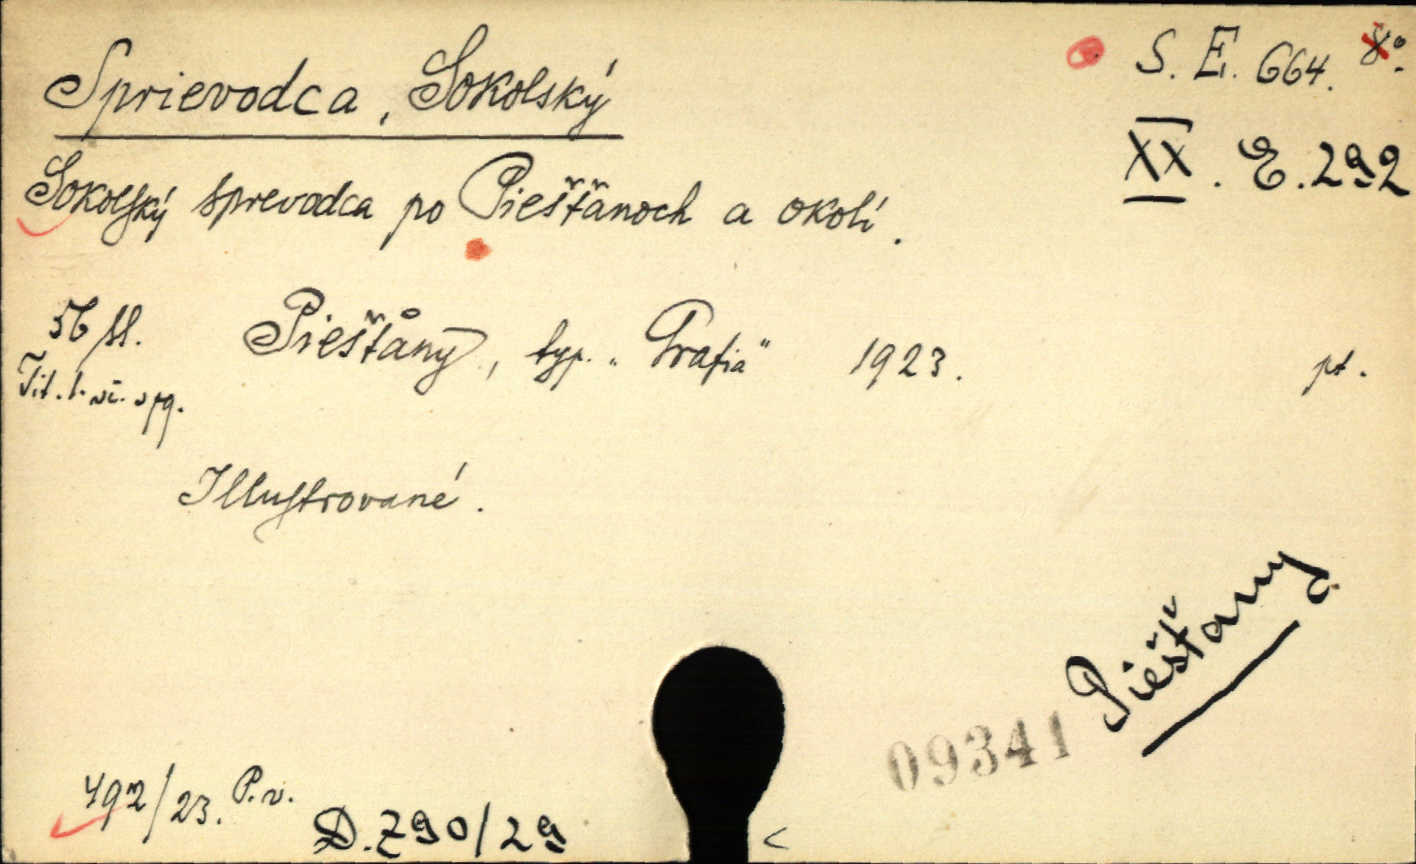 Sprievodca, Sokolský
S. E. 664. 8°.
XX. E. 292
Sokolský sprevodca po Piešťanoch a okolí.
56 sl. Piešťany, typ. „Grafia" 1923. pt.
Tit. l.
Illustrované.
Piešťany
09341
492/23. P. v.
D. 790/29